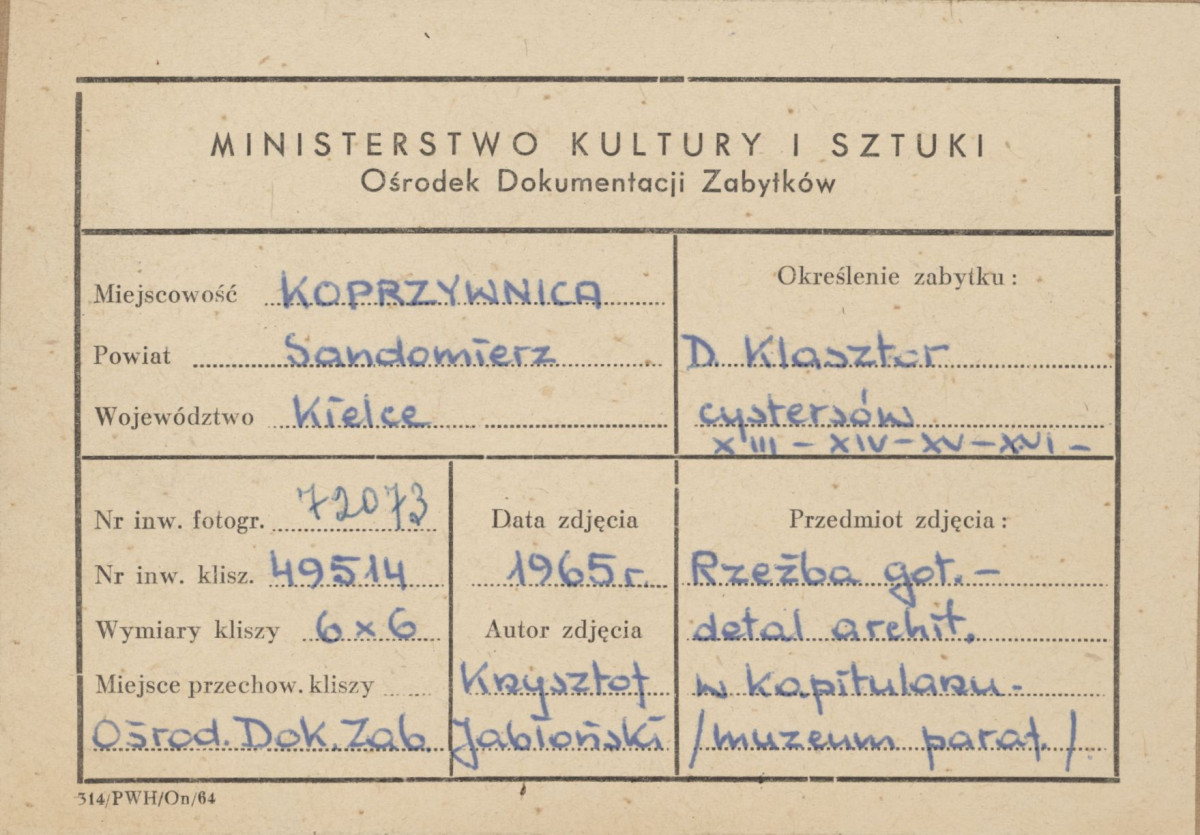 MINISTERSTWO KULTURY I SZTUKI
Ośrodek Dokumentacji Zabytków
Miejscowość KOPRZYWNICA
Powiat Sandomierz
Województwo Kielce
Określenie zabytku:
D. Klasztor
cystersów
XIII – XIV – XV – XVI –
Nr inw. fotogr. 72073
Nr inw. klisz. 49514
Wymiary kliszy 6 x 6
Miejsce przechow. kliszy
Ośrod. Dok. Zab.
Data zdjęcia
1965 r.
Autor zdjęcia
Krzysztof
Jabłoński
Przedmiot zdjęcia:
Rzeźba got. –
detal archit.
w kapitularzu -
/muzeum paraf./
314/PWH/On/64